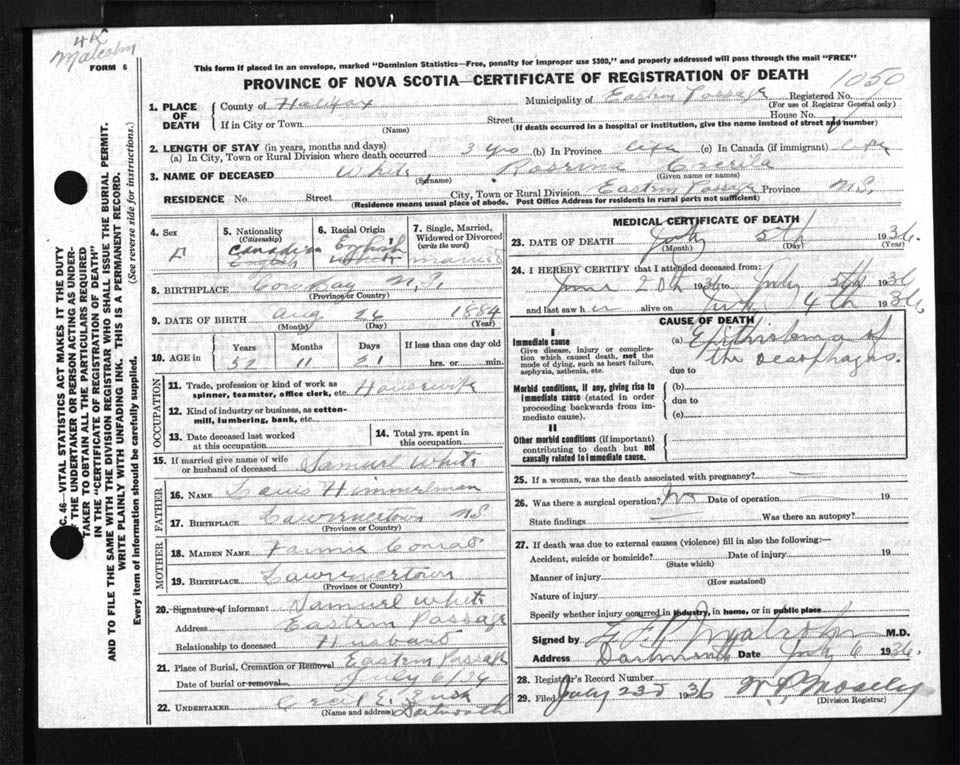 4K
Malcolm
FORM 6
This form if placed in an envelope, marked "Dominion Statistics—Free, penalty for improper use $300," and properly addressed will pass through the mail "FREE"
PROVINCE OF NOVA SCOTIA—CERTIFICATE OF REGISTRATION OF DEATH
1050
1. PLACE OF DEATH
County of Halifax Municipality of Eastern Passage Registered No.
(For use of Registrar General only)
If in City or Town Street House No.
(Name) (If death occurred in a hospital or institution, give the name instead of street and number)
2. LENGTH OF STAY (in years, months and days)
(a) In City, Town or Rural Division where death occurred 3 yrs (b) In Province life (c) In Canada (if immigrant) life
3. NAME OF DECEASED White, Cecelia
(Surname) (Given name or names)
RESIDENCE No. Street City, Town or Rural Division Eastern Passage Province N.S.
(Residence means usual place of abode. Post Office Address for residents in rural parts not sufficient)
4. Sex
F
5. Nationality
(Citizenship)
Canadian
6. Racial Origin
English
7. Single, Married, Widowed or Divorced
(write the word)
Married
8. BIRTHPLACE Cow Bay N.S.
(Province or Country)
9. DATE OF BIRTH Aug 26 1884
(Month) (Day) (Year)
10. AGE in
Years Months Days If less than one day old
52 11 21 hrs. or min.
OCCUPATION
11. Trade, profession or kind of work as spinner, teamster, office clerk, etc. Housewife
12. Kind of industry or business, as cotton-mill, lumbering, bank, etc.
13. Date deceased last worked at this occupation
14. Total yrs. spent in this occupation
15. If married give name of wife or husband of deceased Samuel White
FATHER
16. NAME Himmelman
17. BIRTHPLACE Lawrencetown N.S.
(Province or Country)
MOTHER
18. MAIDEN NAME Conrad
19. BIRTHPLACE Lawrencetown
(Province or Country)
20. Signature of informant Samuel White
Address Eastern Passage
Relationship to deceased Husband
21. Place of Burial, Cremation or Removal Eastern Passage
Date of burial or removal July 6/36
22. UNDERTAKER Cecil E.
(Name and address) Dartmouth
MEDICAL CERTIFICATE OF DEATH
23. DATE OF DEATH July 5th 1936.
(Month) (Day) (Year)
24. I HEREBY CERTIFY that I attended deceased from:
June 20th 1936 to July 5th 1936
and last saw her alive on July 4th 1936.
CAUSE OF DEATH
I
Immediate cause
Give disease, injury or complication which caused death, not the mode of dying, such as heart failure, asphyxia, asthenia, etc.
(a) Epithelioma of
the oesophagus.
due to
Morbid conditions, if any, giving rise to immediate cause (stated in order proceeding backwards from immediate cause).
(b)
due to
(c)
II
Other morbid conditions (if important) contributing to death but not causally related to immediate cause.
25. If a woman, was the death associated with pregnancy?
26. Was there a surgical operation? No Date of operation 19
State findings Was there an autopsy?
27. If death was due to external causes (violence) fill in also the following:—
Accident, suicide or homicide? Date of injury 19
(State which)
Manner of injury
(How sustained)
Nature of injury
Specify whether injury occurred in industry, in home, or in public place
Signed by Malcolm M.D.
Address Dartmouth Date July 6 1936.
28. Registrar's Record Number
29. Filed July 23d 1936 Mosely
(Division Registrar)
C. 46—VITAL STATISTICS ACT MAKES IT THE DUTY
OF THE UNDERTAKER OR PERSON ACTING AS UNDER-
TAKER TO OBTAIN ALL THE PARTICULARS REQUIRED
IN THE "CERTIFICATE OF REGISTRATION OF DEATH"
AND TO FILE THE SAME WITH THE DIVISION REGISTRAR WHO SHALL ISSUE THE BURIAL PERMIT.
WRITE PLAINLY WITH UNFADING INK. THIS IS A PERMANENT RECORD.
Every item of information should be carefully supplied. (See reverse side for instructions.)